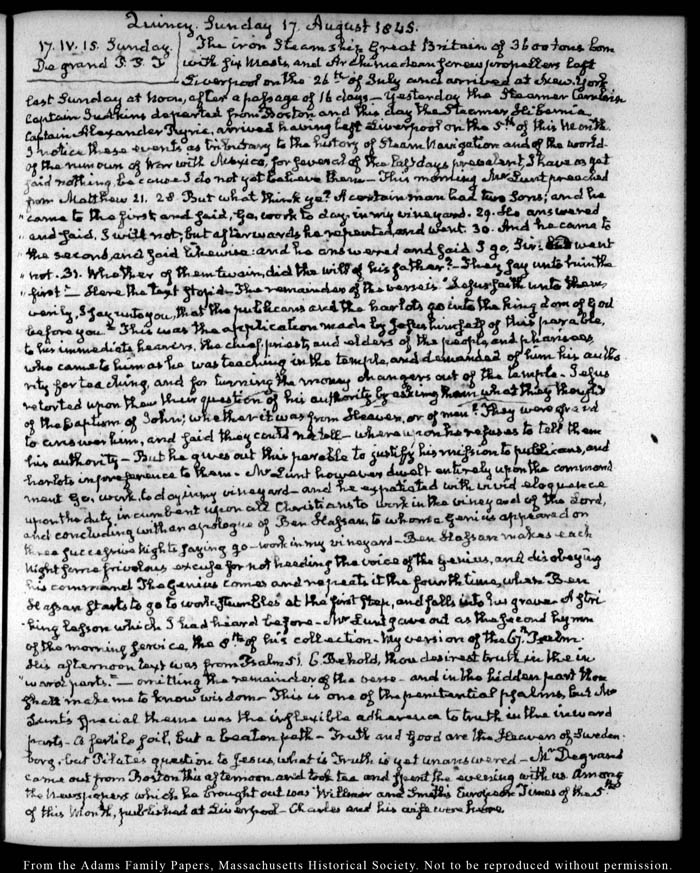 Quincy. Sunday 17. August 1845.
17. IV. 15. Sunday.
De grand P. P. F
The iron Steamship Great Britain of 3600 tons born
with six Masts, and Archimedean screw propellers left
Liverpool on the 26th of July and arrived at New York
last Sunday at Noon, after a passage of 16 days — Yesterday the Steamer Cambria
Captain Judkins departed from Boston and this day the Steamer Hibernia
Captain Alexander Ryrie, arrived having left Liverpool on the 5th of this Month.
I notice these events as tributary to the history of Steam Navigation and of the world.
Of the rumours of War with Mexico, for several of the last days prevalent, I have as yet
said nothing, because I do not yet believe them — This morning Mr Lunt preached
from Matthew 21. 28. But what think ye? A certain man had two Sons; and he
" came to the first and said, Go, work to day in my vineyard. 29. He answered
" and said, I will not; but afterwards he repented, and went. 30. And he came to
" the second, and said likewise: and he answered and said I go, Sir: and went
" not. 31. Whether of them twain, did the will of his father? — They say unto him the
" first" — Here the text stop'd — The remainder of the verse is "Jesus saith unto them
verily, I say unto you, that the publicans and the harlots go into the kingdom of God
before you" This was the application made by Jesus himself of this parable,
to his immediate hearers, the chief priests and elders of the people, and pharisees
who came to him as he was teaching in the temple, and demanded of him his autho
rity for teaching, and for turning the money changers out of the temple — Jesus
retorted upon them their question of his authority by asking them what they thought
of the baptism of John; whether it was from Heaven, or of men? They were afraid
to answer him, and said they could not tell — whereupon he refuses to tell them
his authority — But he gives out this parable to justify his mission to publicans, and
harlots in preference to them — Mr Lunt however dwelt entirely upon the command
ment Go, work, to day in my vineyard — and he expatiated with vivid eloquence
upon the duty incumbent upon all Christians to work in the vineyard of the Lord,
and concluding with an apologue of Ben Hassan, to whom a Genius appeared on
three successive Nights saying go — work in my vineyard — Ben Hassan makes each
Night some frivolous excuse for not heeding the voice of the Genius, and disobeying
his command The Genius comes and repeats it the fourth time, when Ben
Hassan starts to go to work, stumbles at the first step, and falls into his grave — A stri
king lesson which I had heard before — Mr Lunt gave out as the second hymn
of the morning service, the 8th of his collection — My version of the 67th Psalm.
His afternoon text was from Psalm 51. 6. Behold, thou desirest truth in the in
" ward parts." — omitting the remainder of the verse — and in the hidden part thou
shalt make me to know wisdom — This is one of the penitential psalms, but Mr
Lunt's special theme was the inflexible adherence to truth in the inward
parts — A fertile soil, but a beaten path — Truth and Good are the Heaven of Sweden
borg, but Pilate's question to Jesus, what is Truth is yet unanswered — Mr Degrand
came out from Boston this afternoon, and took tea and spent the evening with us. Among
the Newspapers which he brought out was Willmer and Smith's European Times of the 5th
of this Month, published at Liverpool — Charles and his wife were here.
From the Adams Family Papers, Massachusetts Historical Society. Not to be reproduced without permission.